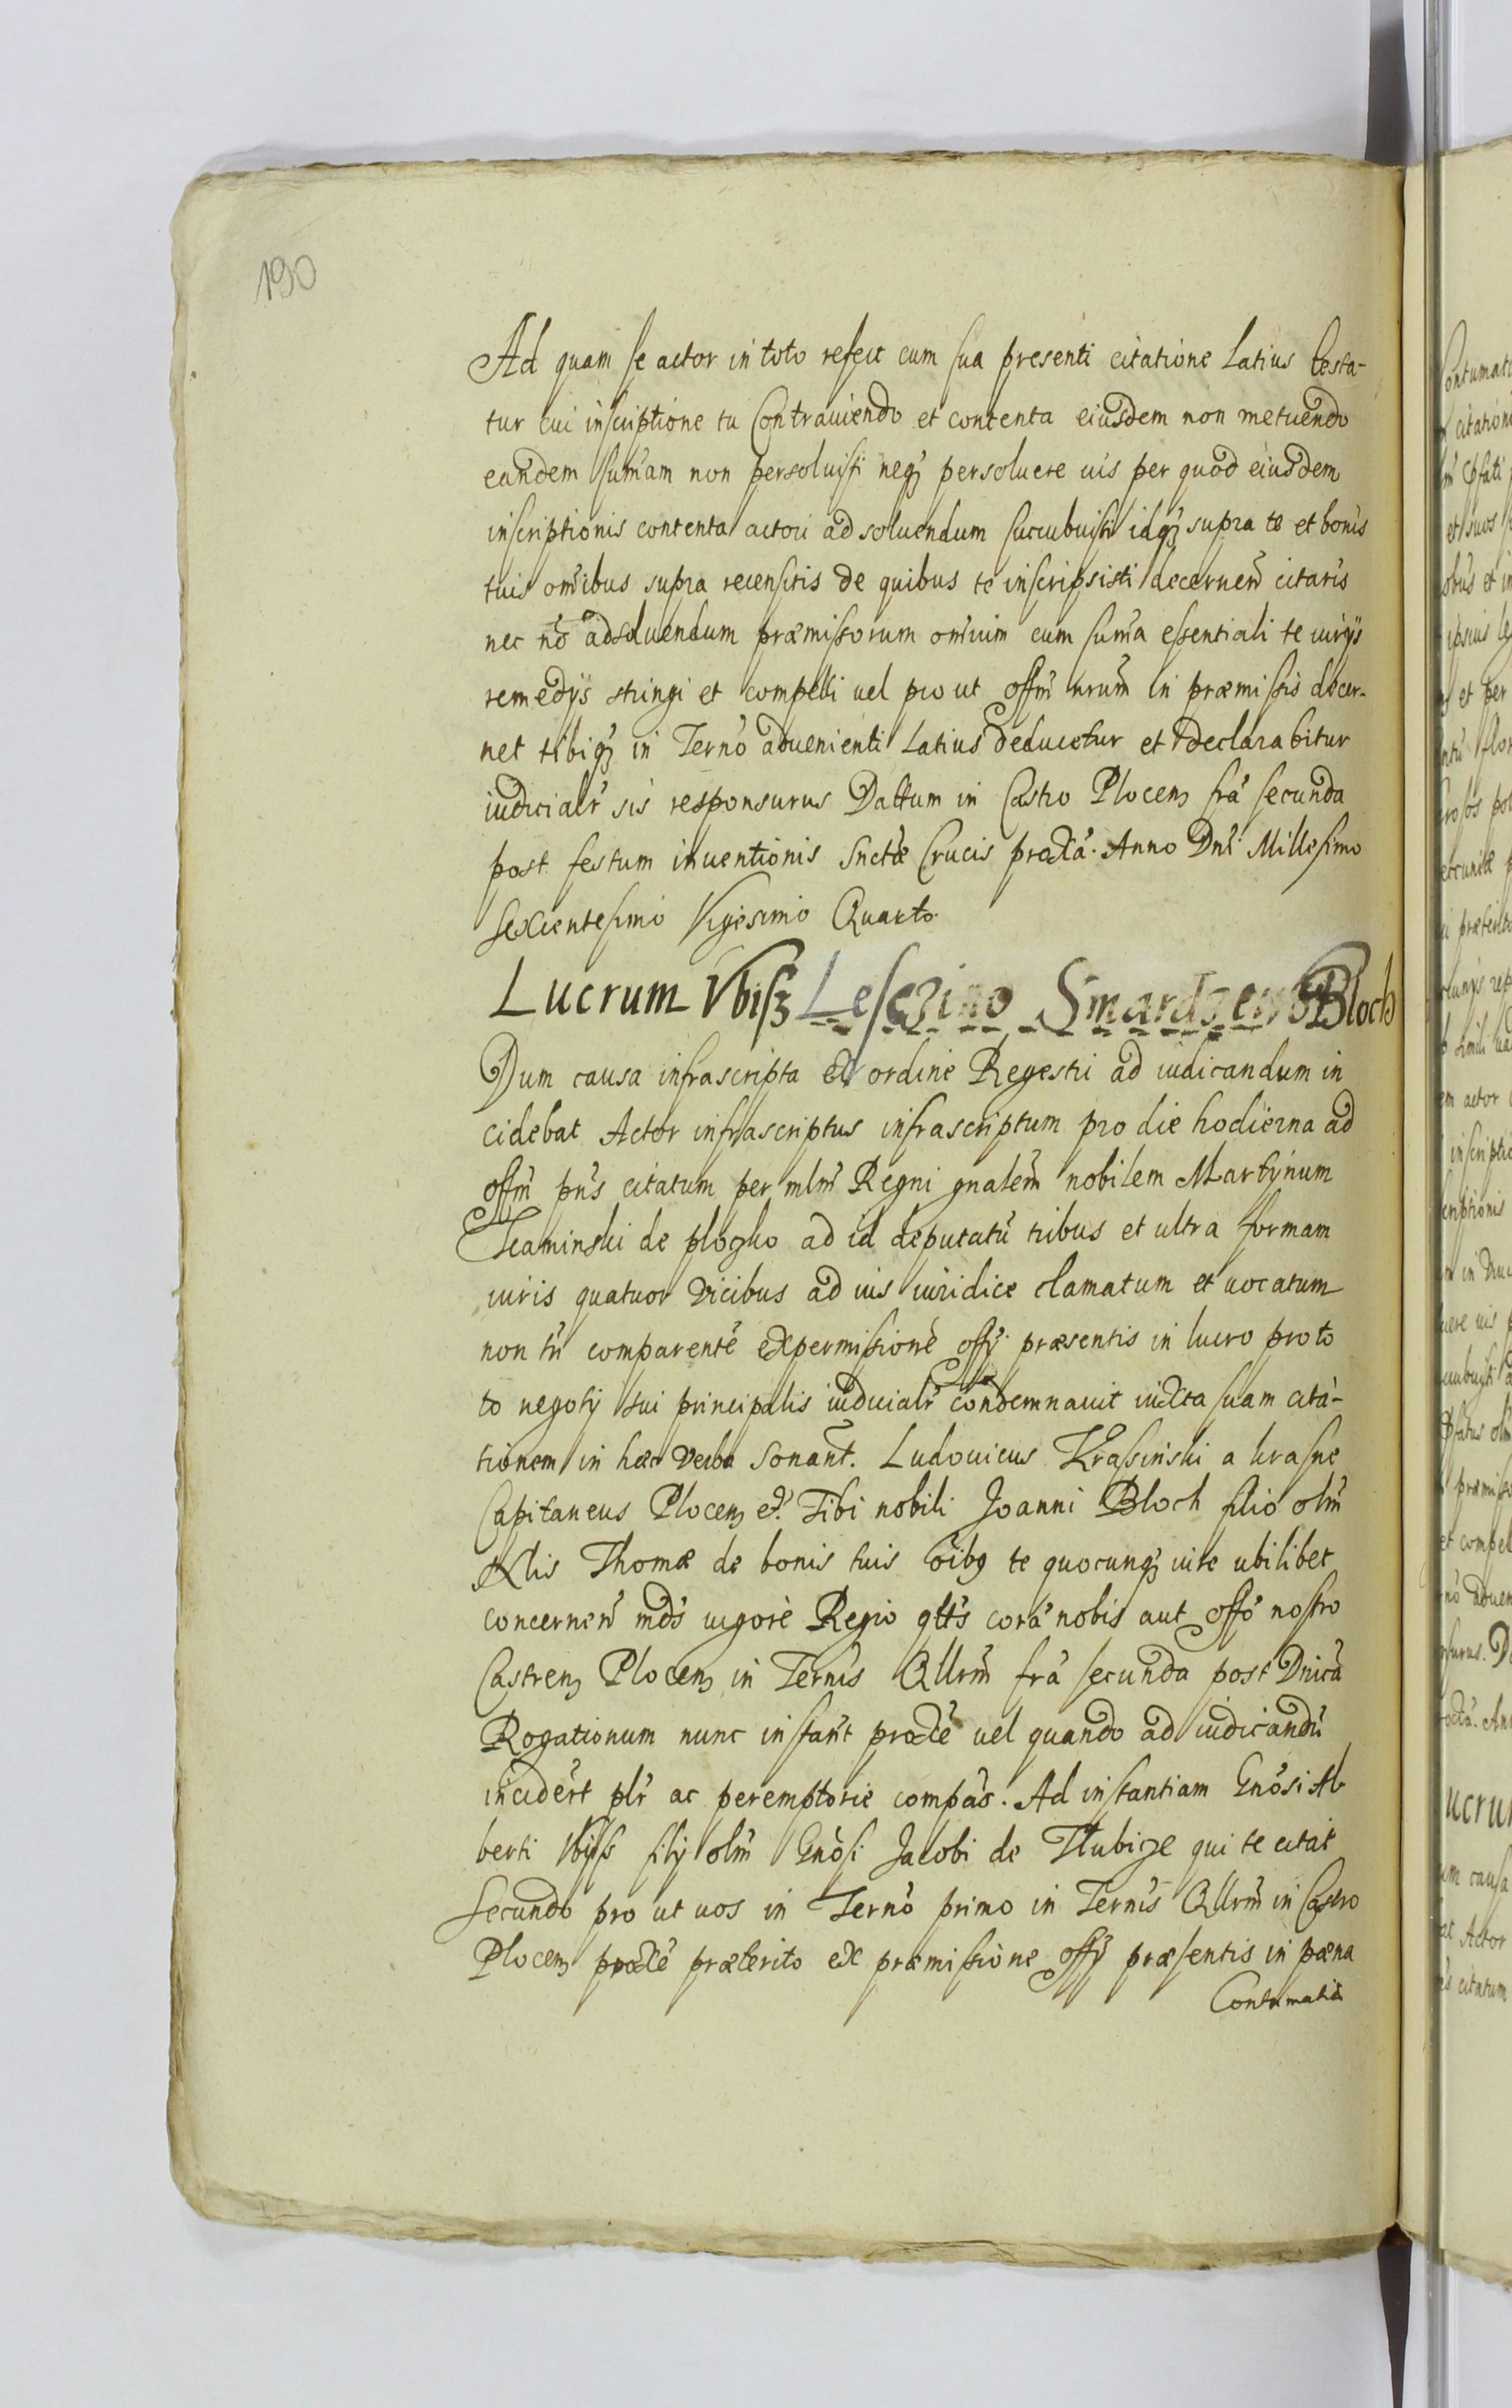 190
Ad quam se actor in toto refert cum sua presenti citatione Latius testa-
tur cui inscriptione tu Contraviendo et contenta eiusdem non metuendo
eandem sum̃am non persoluisti neq₃ persoluere uis per quod eiusdem
inscriptionis contenta actori ad soluendum succubuisti idq₃ supra te et bonis
tuis om̃ibus supra recensitis de quibus te inscripsisti decerneñ citaris
nec nõ adsoluendum præmissorum om̃ium cum sum̃a essentiali te iurijs
remedijs stringi et compelli uel pro ut offm̃ nrum̃ in præmissis decer-
net tibiq₃ in Ternõ aduenienti Latius deducetur et declarabitur
iudicialr̃ sis responsurus Dattum in Castro Plocen₃ frã secunda
post festum inuentionis Snctæ Crucis proxã. Anno Dnĩ Millesimo
Sexcentesimo Vigesimo Quarto.
Lucrum Vbisz Lesczino Smardzewo Bloch
Dum causa infrascripta ex ordine Regestri ad iudicandum in
cidebat Actor infrascriptus infrascriptum pro die hodierna ad
offm̃ pñs citatum per mlm̃ Regni gnalem̃ nobilem Martÿnum
de plozko ad id deputatũ tribus et ultra formam
iuris quatuor vicibus ad ius iuridice clamatum et uocatum
non tñ comparentẽ expermissione offÿ præsentis in lucro pro to
to negotÿ sui principalis iudicialr̃ condemnauit iuxta suam cita-
tionem in hæc verba Sonañt. Ludouicus Krasinski a krasne
Capitaneus Plocen₃ &̃ Tibi nobili Joanni Bloch filio olm̃
Nlis Thomæ de bonis tuis õibg te quocunq₃ iure ubilibet
concerneñ mds̃ uigore Regio qtts̃ corã nobis aut offõ nostro
Castren₃ Plocen₃ in Ternĩs Qllrm̃ frã secunda post Dnicã
Rogationum nunc instañt proxẽ uel quando ad iudicandũ
inciderĩt plr̃ ac peremptorie compãs. Ad instantiam Gnõsi Al-
berti Vbÿss filÿ olm̃ Gnõsi Jacobi de Tlubicze qui te citat
Secundo pro ut uos in Ternõ primo in Ternĩs Qllrm̃ in Castro
Plocen₃ proxẽ præterito ex præmissione offÿ præsentis in pæna
Contumatiæ